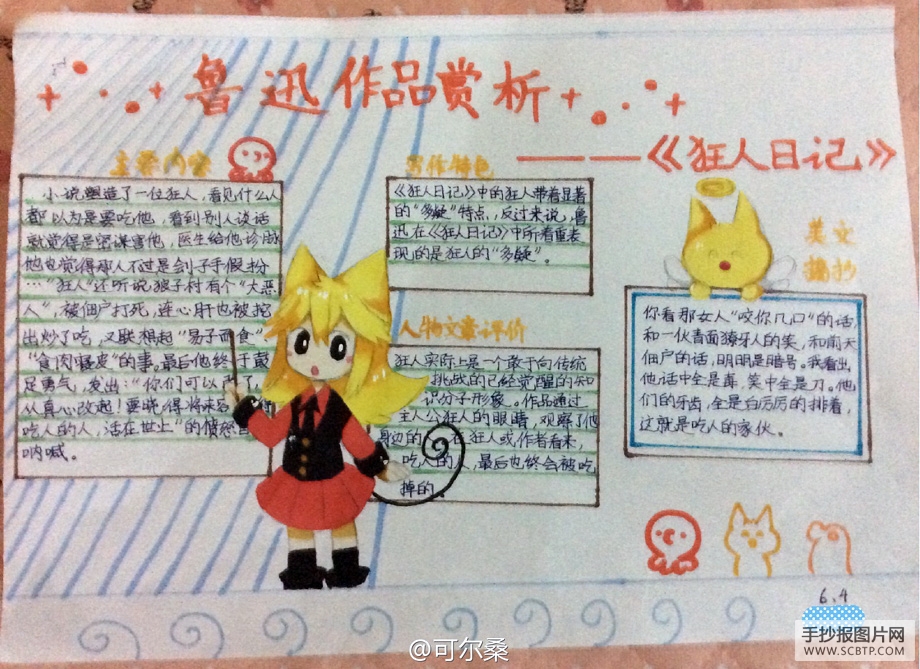 鲁迅作品赏析
——《狂人日记》
主要内容
小说塑造了一位狂人，看见什么人
都以为是要吃他，看到别人谈话
就觉得是密谋害他，医生给他诊脉
他也觉得那人不过是刽子手假扮
…"狂人"还听说狼子村有个"大恶
人"，被佃户打死，连心肝也被挖
出炒了吃，又联想起"易子而食"
"食肉寝皮"的事。最后他终于鼓
足勇气，发出："你们可以改了，
从真心改起！要晓得将来容
吃人的人，活在世上"的愤怒
呐喊。
写作特色
《狂人日记》中的狂人带着显著
的"多疑"特点，反过来说，鲁
迅在《狂人日记》中所着重表
现的是狂人的"多疑"。
人物文章评价
狂人实际上是一个敢于向传统
挑战的已经觉醒的知
识分子形象。作品通过
主人公狂人的眼睛，观察了他
身边的 在狂人或作者看来，
吃人的人，最后也终会被吃
掉的
美文
摘抄
你看那女人"咬你几口"的话，
和一伙青面獠牙人的笑，和前天
佃户的话，明明是暗号。我看出
他话中全是毒，笑中全是刀。他
们的牙齿，全是白厉厉的排着，
这就是吃人的家伙。
6.4
@可尔桑
手抄报图片网
WWW.SCBTP.COM